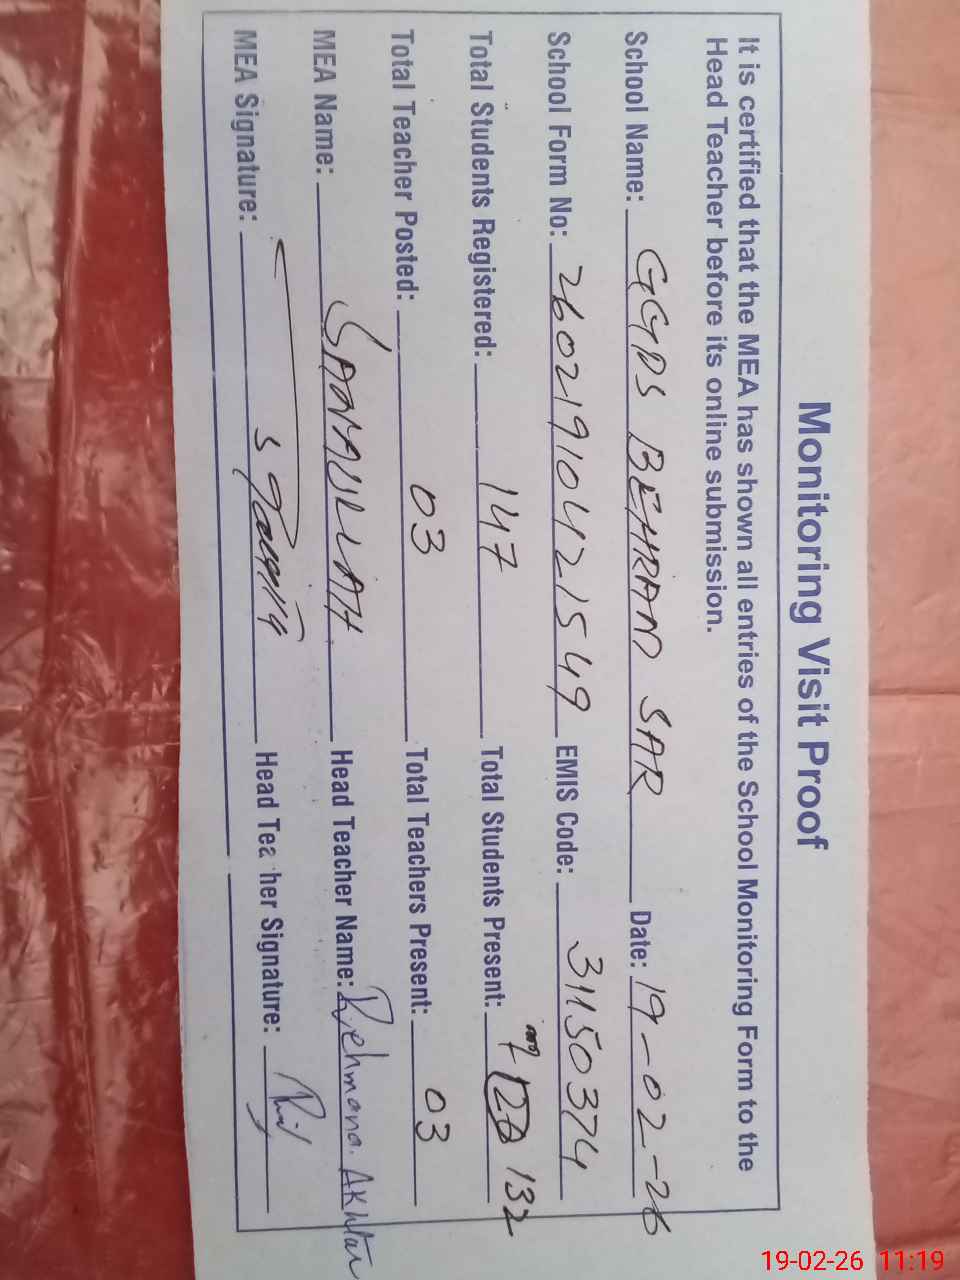 Monitoring Visit Proof
It is certified that the MEA has shown all entries of the School Monitoring Form to the
Head Teacher before its online submission.
School Name: GGPS BEHRAM SAR Date: 19-02-26
School Form No: 26021910421549 EMIS Code: 31150374
Total Students Registered: 147 Total Students Present: 132
Total Teacher Posted: 03 Total Teachers Present: 03
MEA Name: SANAULLAH Head Teacher Name: Rehmana Akhtar
MEA Signature: Head Teacher Signature:
19-02-26 11:19